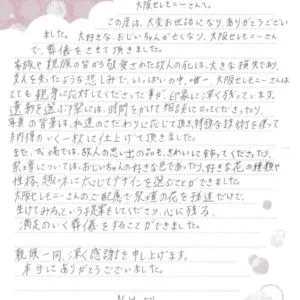 大阪セレモニーさんへ。
この度は、大変お世話になり、ありがとうござい
ました。大好きな、おじいちゃんが亡くなり、大阪セレモニーさん
で、葬儀をさせて頂きました。
家族や親族の皆から敬愛された故人の死は、大きな損失であり、
支えを失ったような悲しみで、いっぱいの中、唯一、大阪セレモニーさんは
とても親身に応対してくださった事が、印象に深く残っています。
遺影を選ぶ際には、時間をかけて相談にのってくださったり、
写真の背景は、私達のこだわりに応じて頂き、特殊な技術を使って
納得のいく一枚に仕上げて頂きました。
また、広場では、故人の思い出の品も、きれいして飾ってくださったり、
祭壇については、おじいちゃんの好きな色であったり、好きな花の種類や
性格、趣味に応じてデザインを選ぶことができました。
大阪セレモニーさんのご配慮で祭壇の花を
生けてみるという提案をしてくださり、心に残る、
満足のいく葬儀をすることができました。
親族一同、深く感謝を申し上げます。
本当にありがとうございました。